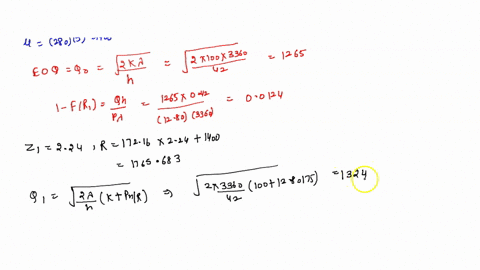 μ = (280)(5)
EOQ = Q₀ = √(2KA/h) = √(2×100×3360/42) = 1265
1-F(R₁) = Qh/PA = 1265×0.42/(12.80)(3360) = 0.0124
Z₁ = 2.24 , R = 172.16 × 2.24 + 1400
= 1765.683
Q₁ = √(2A/h (K+Pn/R) ⇒ √(2×3360/42 (100+12.80175) = 1324